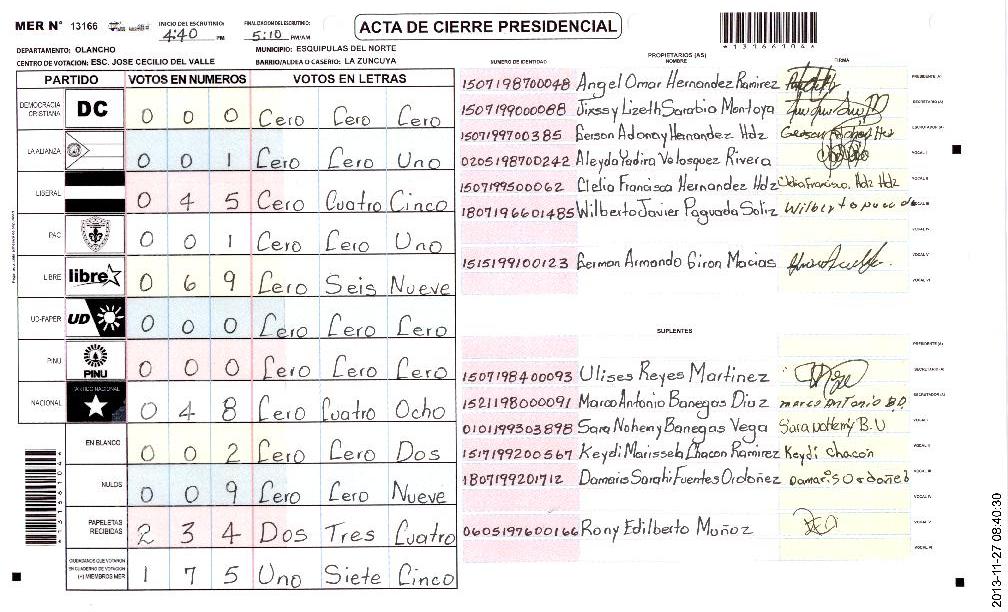 MER N° 13166
INICIO DEL ESCRUTINIO: 4:40 PM
FINALIZACION DEL ESCRUTINIO: 5:10 PM/AM
ACTA DE CIERRE PRESIDENCIAL
*13166104*
DEPARTAMENTO: OLANCHO
MUNICIPIO: ESQUIPULAS DEL NORTE
CENTRO DE VOTACION: ESC. JOSE CECILIO DEL VALLE
BARRIO/ALDEA O CASERIO: LA ZUNCUYA
PARTIDO VOTOS EN NUMEROS VOTOS EN LETRAS
DEMOCRACIA CRISTIANA DC 0 0 0 Cero Cero Cero
LA ALIANZA 0 0 1 Cero Cero Uno
LIBERAL 0 4 5 Cero Cuatro Cinco
PAC 0 0 1 Cero Cero Uno
LIBRE libre 0 6 9 Cero Seis Nueve
UD-FAPER UD 0 0 0 Cero Cero Cero
PINU PINU 0 0 0 Cero Cero Cero
NACIONAL PARTIDO NACIONAL 0 4 8 Cero Cuatro Ocho
EN BLANCO 0 0 2 Cero Cero Dos
NULOS 0 0 9 Cero Cero Nueve
PAPELETAS RECIBIDAS 2 3 4 Dos Tres Cuatro
CIUDADANOS QUE VOTARON EN CUADERNO DE VOTACION (+) MIEMBROS MER 1 7 5 Uno Siete Cinco
*13166104*
PROPIETARIOS (AS)
NUMERO DE IDENTIDAD NOMBRE FIRMA
1507198700048 Angel Omar Hernandez Ramirez PRESIDENTE (A)
1507199000088 Jixssy Lizeth Sarabia Montoya SECRETARIO (A)
1507199700385 Gerson Adonay Hernandez Hdz ESCRUTADOR (A)
0205198700242 Aleyda Yadira Velasquez Rivera VOCAL I
1507199500062 Clelia Francisca Hernandez Hdz Clelia Francisca Hdz Hdz VOCAL II
1807196601485 Wilberto Javier Paguada Soliz Wilberto VOCAL III
VOCAL IV
1515199100123 German Armando Giron Macias VOCAL V
VOCAL VI
SUPLENTES
PRESIDENTE (A)
1507198400093 Ulises Reyes Martinez SECRETARIO (A)
1521198000091 Marco Antonio Banegas Diaz marco Antonio B.D. ESCRUTADOR (A)
0101199303898 Sara Nohemy Banegas Vega Sara Nohemy B.V VOCAL I
1517199200567 Keydi Marissela Chacon Ramirez Keydi chacón VOCAL II
1807199201712 Damaris Sarahi Fuentes Ordoñez VOCAL III
VOCAL IV
0605197600166 Rony Edilberto Muñoz VOCAL V
VOCAL VI
2013-11-27 08:40:30